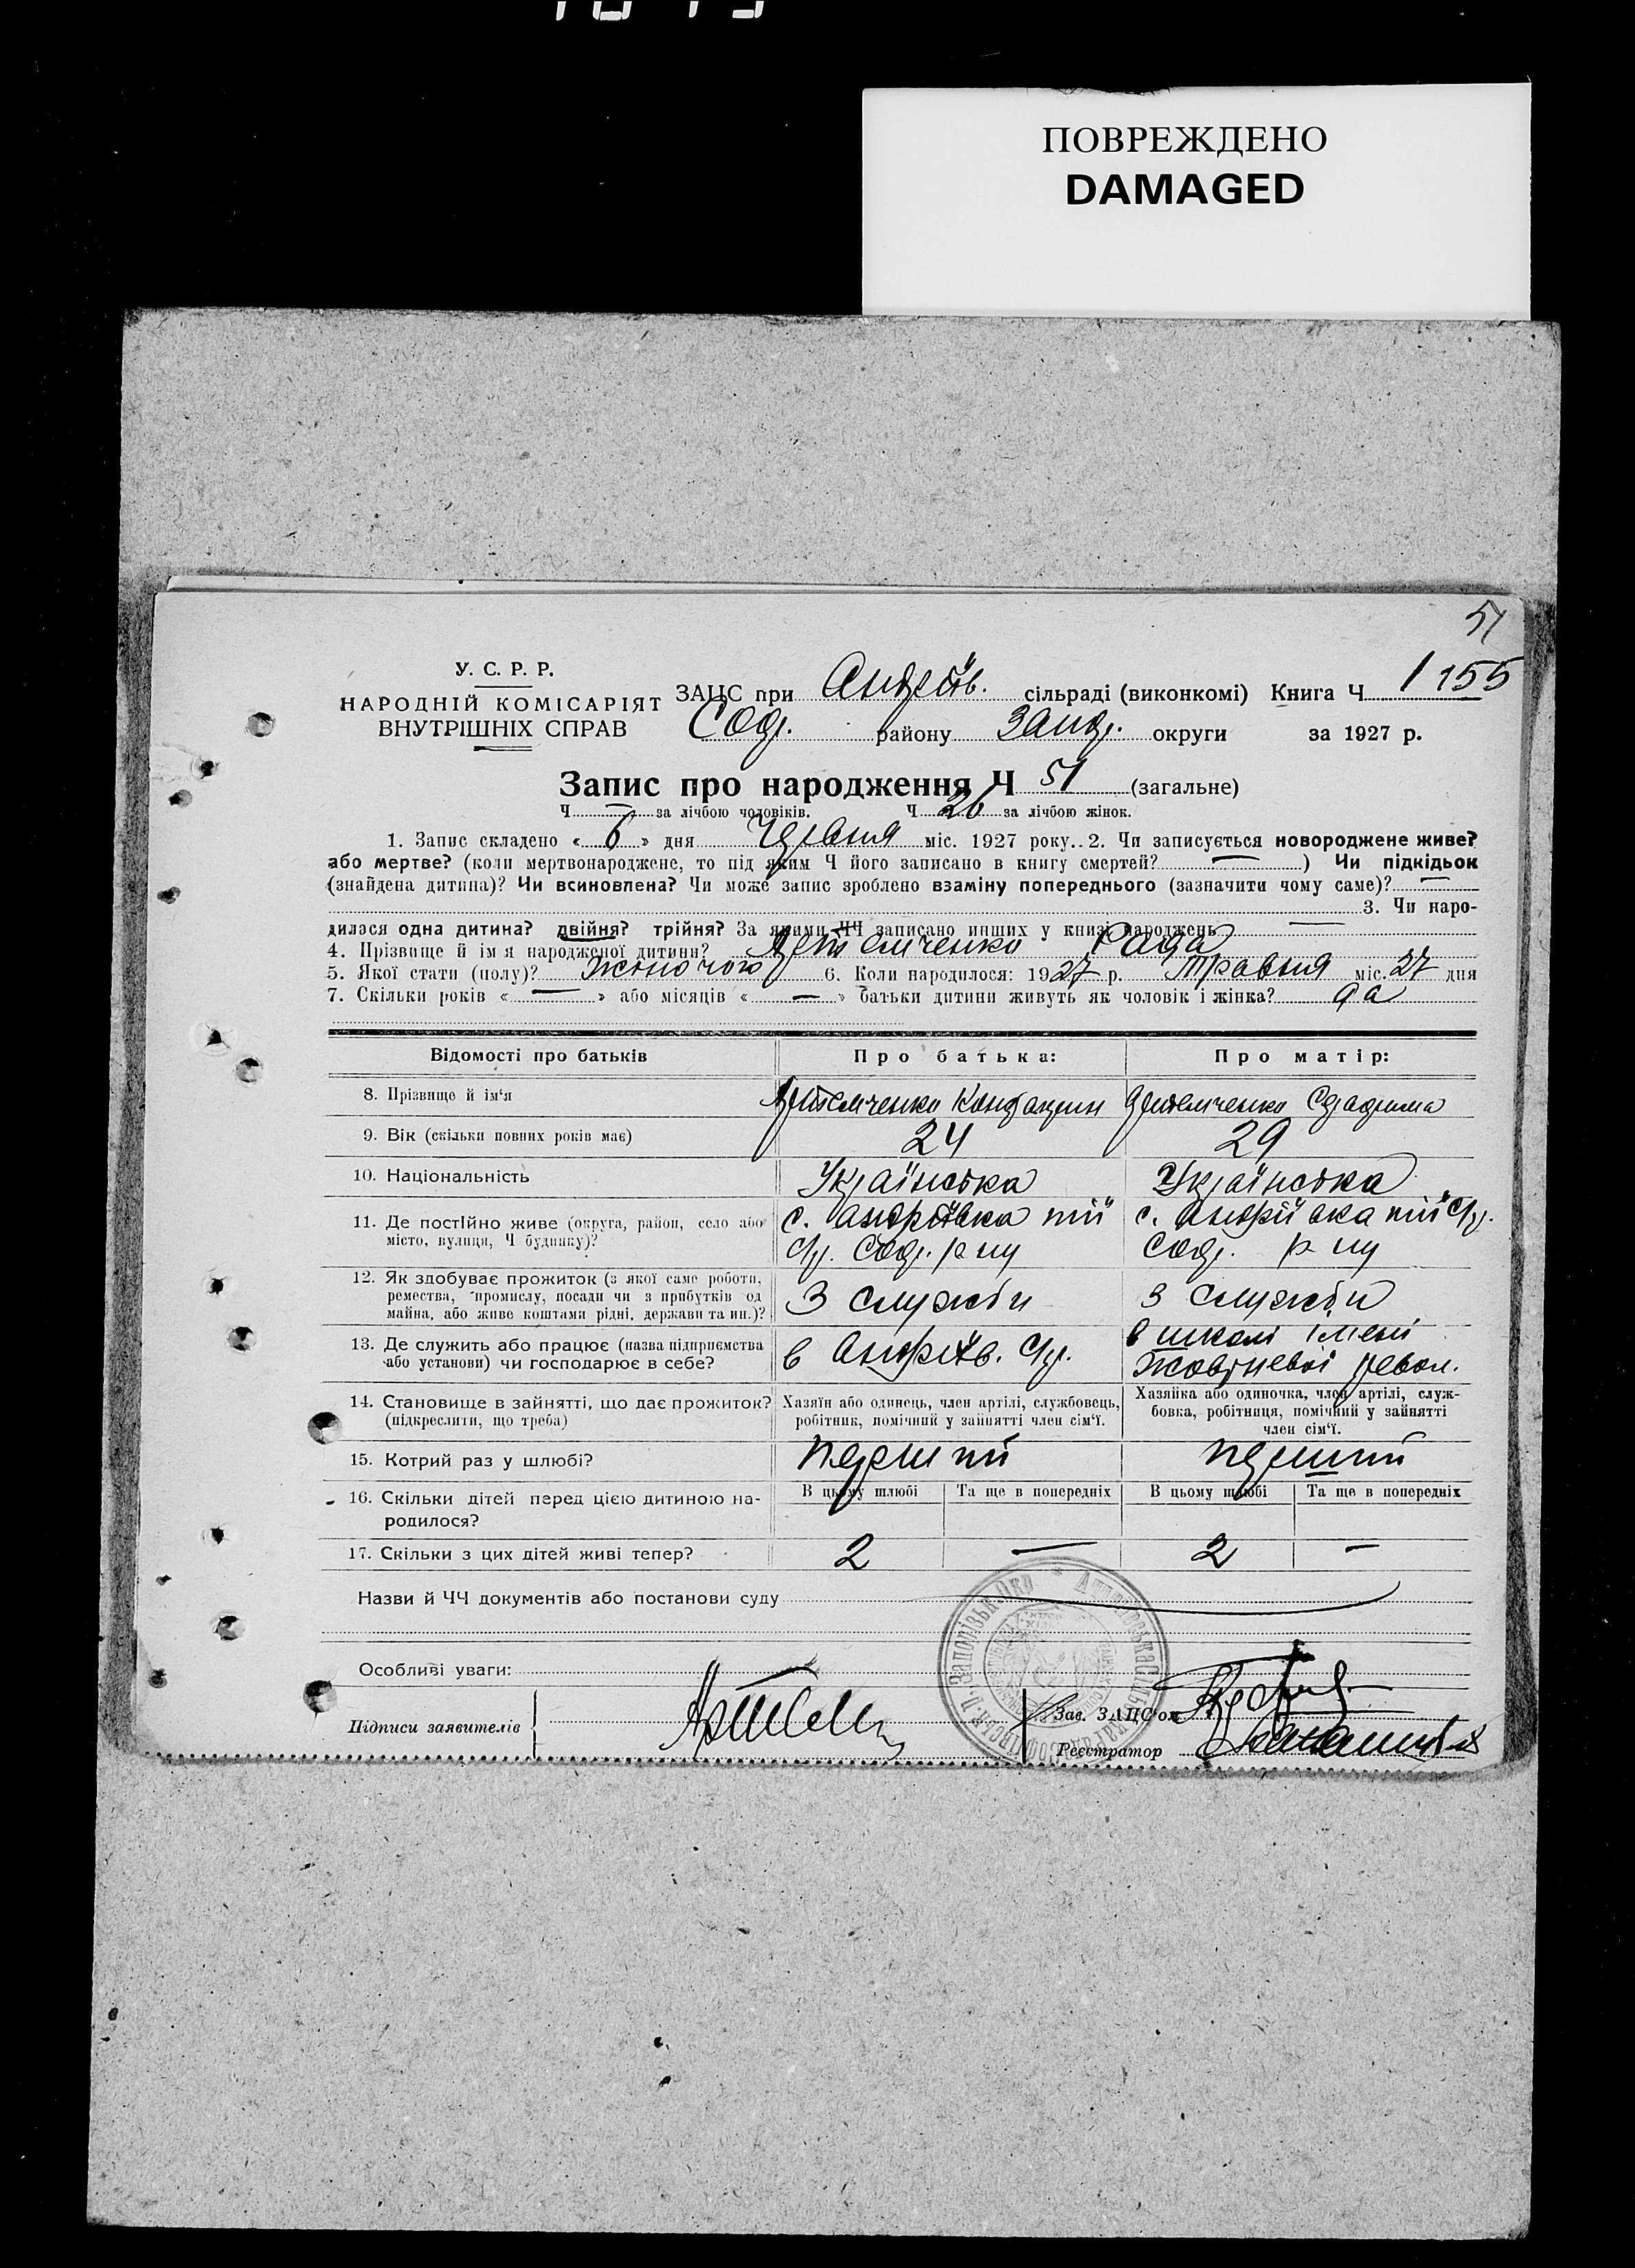 ПОВРЕЖДЕНО
DAMAGED
51
У. С. Р. Р.
НАРОДНІЙ КОМІСАРІЯТ
ВНУТРІШНІХ СПРАВ
ЗАЦС при Андріїв. сільраді (виконкомі) Книга Ч 1 155
Соф. району Запор. округи за 1927 р.
Запис про народження Ч 51 (загальне)
Ч — за лічбою чоловіків. Ч 26 за лічбою жінок.
1. Запис складено « 6 » дня Червня міс. 1927 року. 2. Чи записується новороджене живе?
або мертве? (коли мертвонароджене, то під яким Ч його записано в книгу смертей? — ) Чи підкідьок
(знайдена дитина)? Чи всиновлена? Чи може запис зроблено взаміну попереднього (зазначити чому саме)? —
3. Чи наро-
дилася одна дитина? двійня? трійня? За якими ЧЧ записано инших у книзі народжень —
4. Прізвище й ім'я народженої дитини? Артемченко Рада
5. Якої стати (полу)? жіночого 6. Коли народилося: 1927 р. травня міс. 27 дня
7. Скільки років « — » або місяців « — » батьки дитини живуть як чоловік і жінка? да
Відомості про батьків Про батька: Про матір:
8. Прізвище й ім'я Артемченко Артемченко
9. Вік (скільки повних років має) 24 29
10. Національність Українська Українська
11. Де постійно живе (округа, район, село або
місто, вулиця, Ч будинку)?
с. Андріївка тії
с/р. Соф. р ну
с. Андріївка тії с/р.
Соф. р ну
12. Як здобуває прожиток (з якої саме роботи,
ремества, промислу, посади чи з прибутків од
майна, або живе коштами рідні, держави та ин.)?
З служби З служби
13. Де служить або працює (назва підприємства
або установи) чи господарює в себе?
в Андріїв. с/р.
в школі імені
Жовтневої револ.
14. Становище в зайнятті, що дає прожиток?
(підкреслити, що треба)
Хазяїн або одинець, член артілі, службовець,
робітник, помічний у зайнятті член сім'ї.
Хазяйка або одиночка, член артілі, служ-
бовка, робітниця, помічний у зайнятті
член сім'ї.
15. Котрий раз у шлюбі? перший перший
16. Скільки дітей перед цією дитиною на-
родилося?
В цьому шлюбі Та ще в попередніх В цьому шлюбі Та ще в попередніх
17. Скільки з цих дітей живі тепер? 2 — 2 —
Назви й ЧЧ документів або постанови суду
Особливі уваги:
Підписи заявителів
Зав. ЗАЦС'ом
Реєстратор